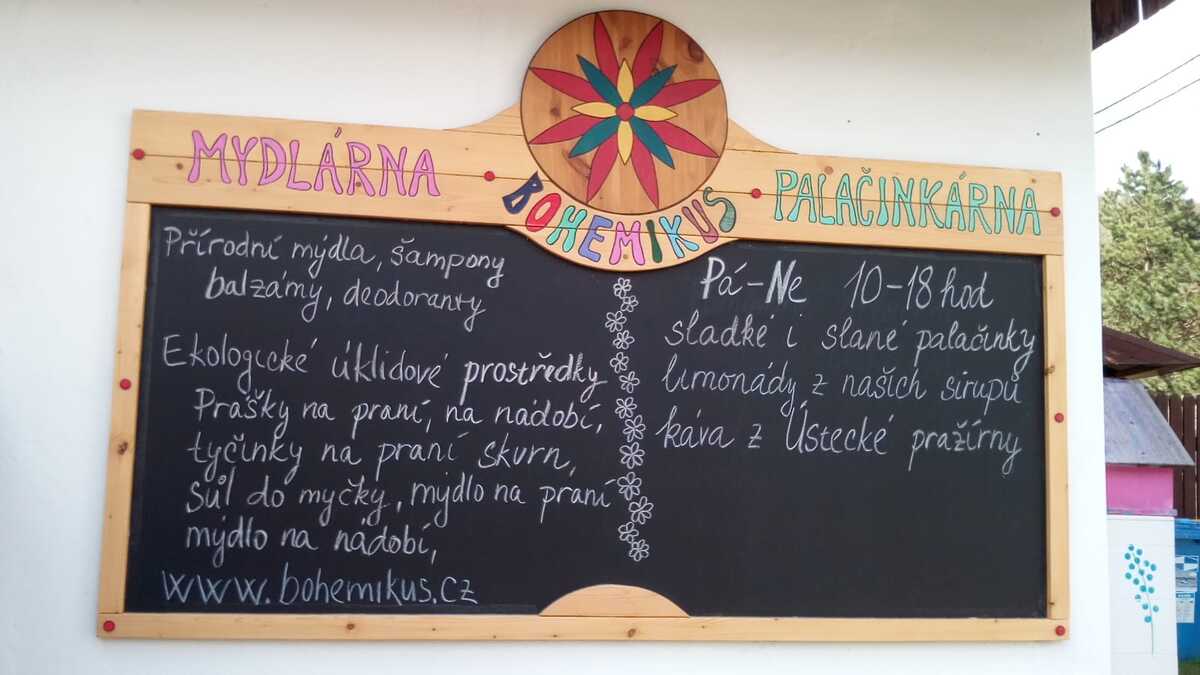 MYDLÁRNA
BOHEMIKUS
PALAČINKÁRNA
Přírodní mýdla, šampony
balzámy, deodoranty
Ekologické úklidové prostředky
Prášky na praní, na nádobí,
tyčinky na praní skvrn,
sůl do myčky, mýdlo na praní
mýdlo na nádobí,
www.bohemikus.cz
Pá-Ne 10-18 hod
sladké i slané palačinky
limonády z našich sirupů
káva z Ústecké pražírny